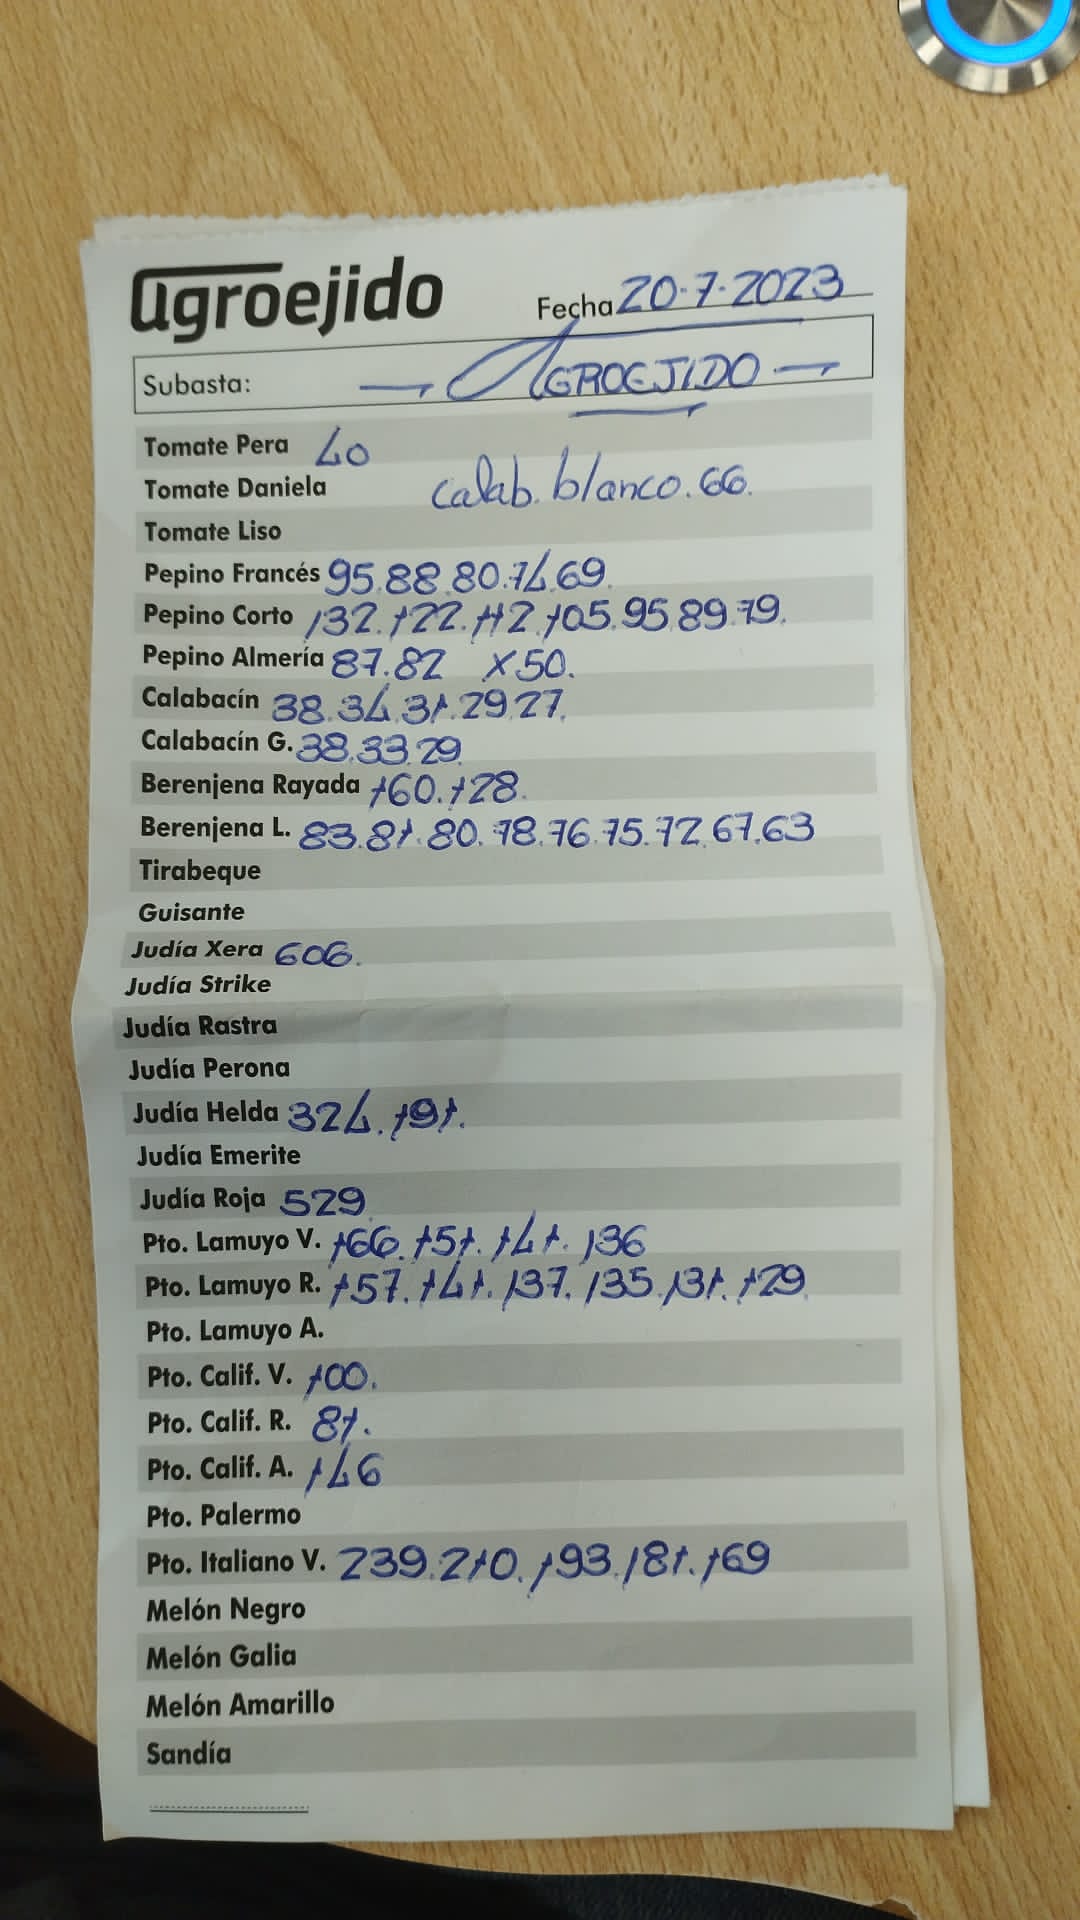 agroejido
Fecha 20.7.2023
Subasta: AGROEJIDO
Tomate Pera 40
Tomate Daniela calab. blanco. 66.
Tomate Liso
Pepino Francés 95.88.80.74.69.
Pepino Corto 132.122.112.105.95.89.79.
Pepino Almería 87.82 X50.
Calabacín 38.34.31.29.27.
Calabacín G. 38.33.29.
Berenjena Rayada 160.128.
Berenjena L. 83.81.80.78.76.75.72.67.63
Tirabeque
Guisante
Judía Xera 606.
Judía Strike
Judía Rastra
Judía Perona
Judía Helda 324.191.
Judía Emerite
Judía Roja 529.
Pto. Lamuyo V. 166.151.141.136
Pto. Lamuyo R. 157.141.137.135.131.129.
Pto. Lamuyo A.
Pto. Calif. V. 100.
Pto. Calif. R. 81.
Pto. Calif. A. 146
Pto. Palermo
Pto. Italiano V. 239.210.193.181.169
Melón Negro
Melón Galia
Melón Amarillo
Sandía